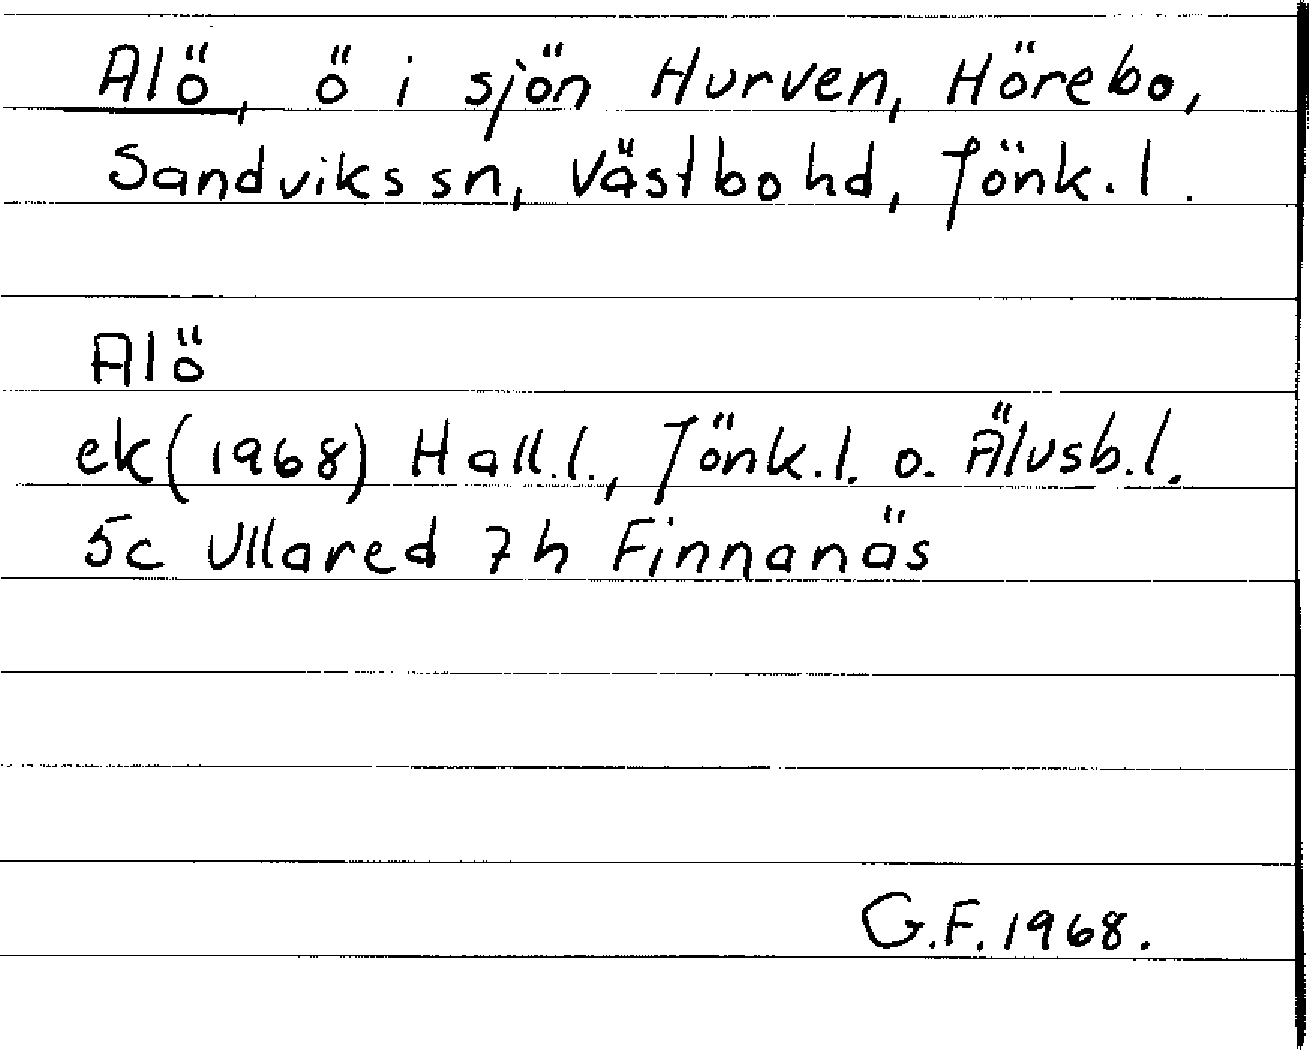 Alö, ö i sjön Hurven, Hörebo,
Sandviks sn, Västbo hd, Jönk. l.
Alö
ek (1968) Hall. l., Jönk. l. o. Älvsb. l.
5c Ullared 7h Finnanäs
G.F. 1968.